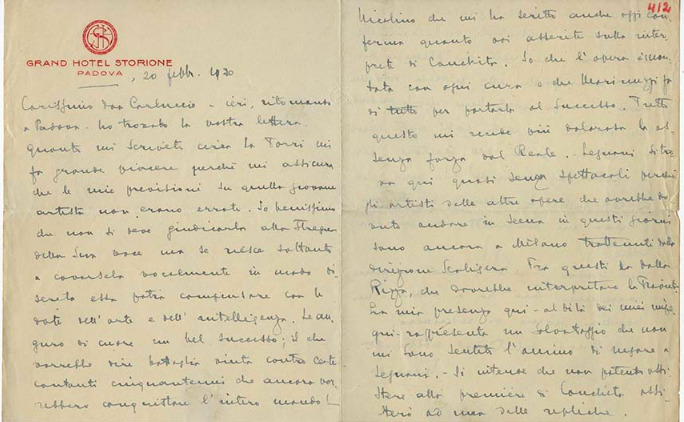 GRAND HOTEL STORIONE
PADOVA
, 20 febbr. 1930
Carissimo don Carluccio - ieri, ritornando
a Padova ho trovato la vostra lettera.
Quanto mi scrivete circa la Torri mi
fa grande piacere perchè mi assicura
che le mie previsioni su quella giovane
artista non erano errate. So benissimo
che non si deve giudicarla alla stregua
della sua voce ma se riesce soltanto
a cavarsela vocalmente in modo di-
screto essa potrà compensare con le
doti dell'arte e dell'intelligenza. Le au-
guro di cuore un bel successo; il che
vorrebbe dire battaglia vinta contro certe
cantanti cinquantenni che ancora vor-
rebbero conquistare l'intero mondo!
412
Nicolino che mi ha scritto anche oggi con-
ferma quanto voi asserite sulla inter-
prete di Conchita. So che l'opera è mon-
tata con ogni cura e che Marinuzzi fa
di tutto per portarla al successo. Tutto
questo mi rende più dolorosa la as-
senza forzata dal Reale. Legnani si tro-
va qui quasi senza spettacoli perchè
gli artisti delle altre opere che avrebbero do-
vuto andare in scena in questi giorni
sono ancora a Milano trattenuti dalla
direzione Scaligera. Tra questi la Dalla
Rizza, che dovrebbe interpretare la Traviata.
La mia presenza qui -
qui - rappresenta un vantaggio che non
mi sono sentito l'animo di negare a
Legnani. - Si intende che non potendo assi-
stere alla première di Conchita assi-
sterò ad una delle repliche.